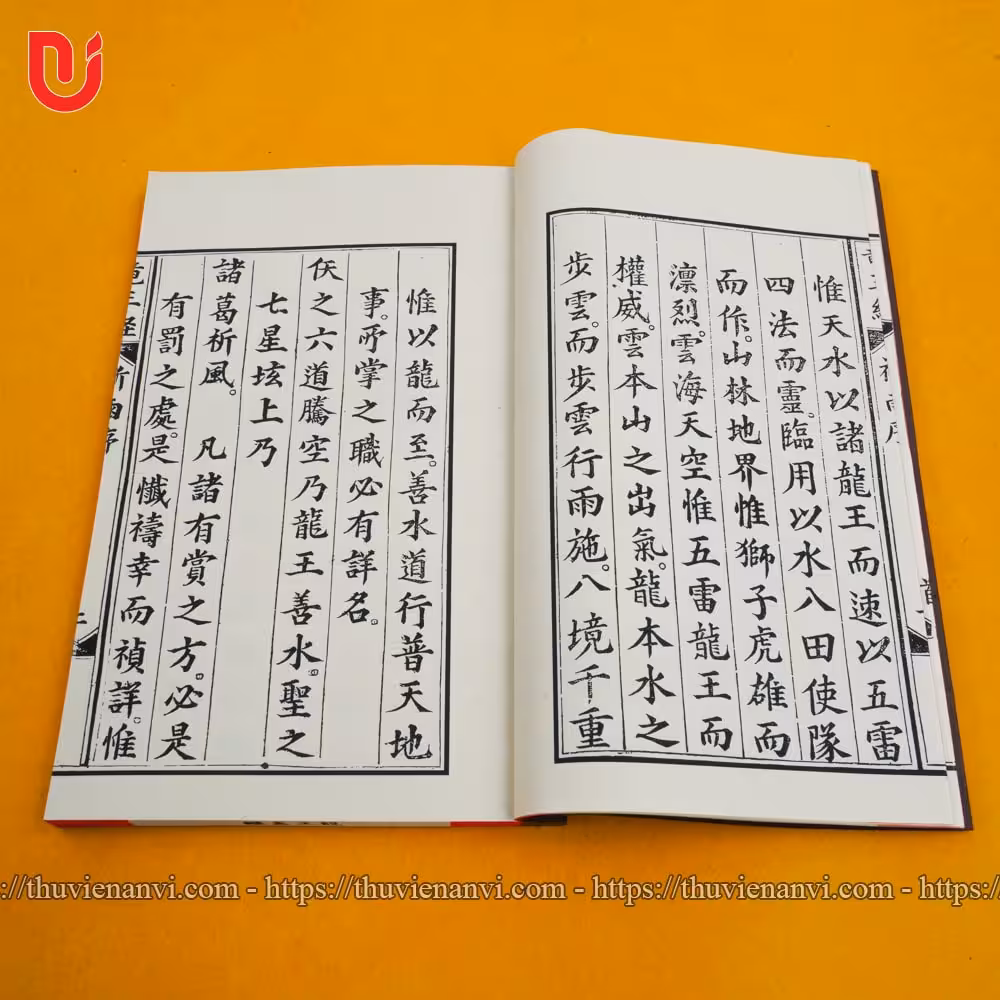 惟天水以諸龍王而速以五雷
四法而靈。臨用以水八田使隊
而作。山林地界惟獅子虎雄而
凛烈。雲海天空惟五雷龍王而
權威。雲本山之出氣。龍本水之
步雲。而步雲行雨施。八境千重
惟以龍而至。善水道行普天地
事。所掌之職必有詳名。
仸之六道騰空乃龍王善水。聖之
七星垓上乃
諸葛祈風。 凡諸有賞之方。必是
有罰之處。是懺禱幸而禎詳。惟
://thuvienanvi.com - https://thuvienanvi.com - https://thuvienanvi.com - https://